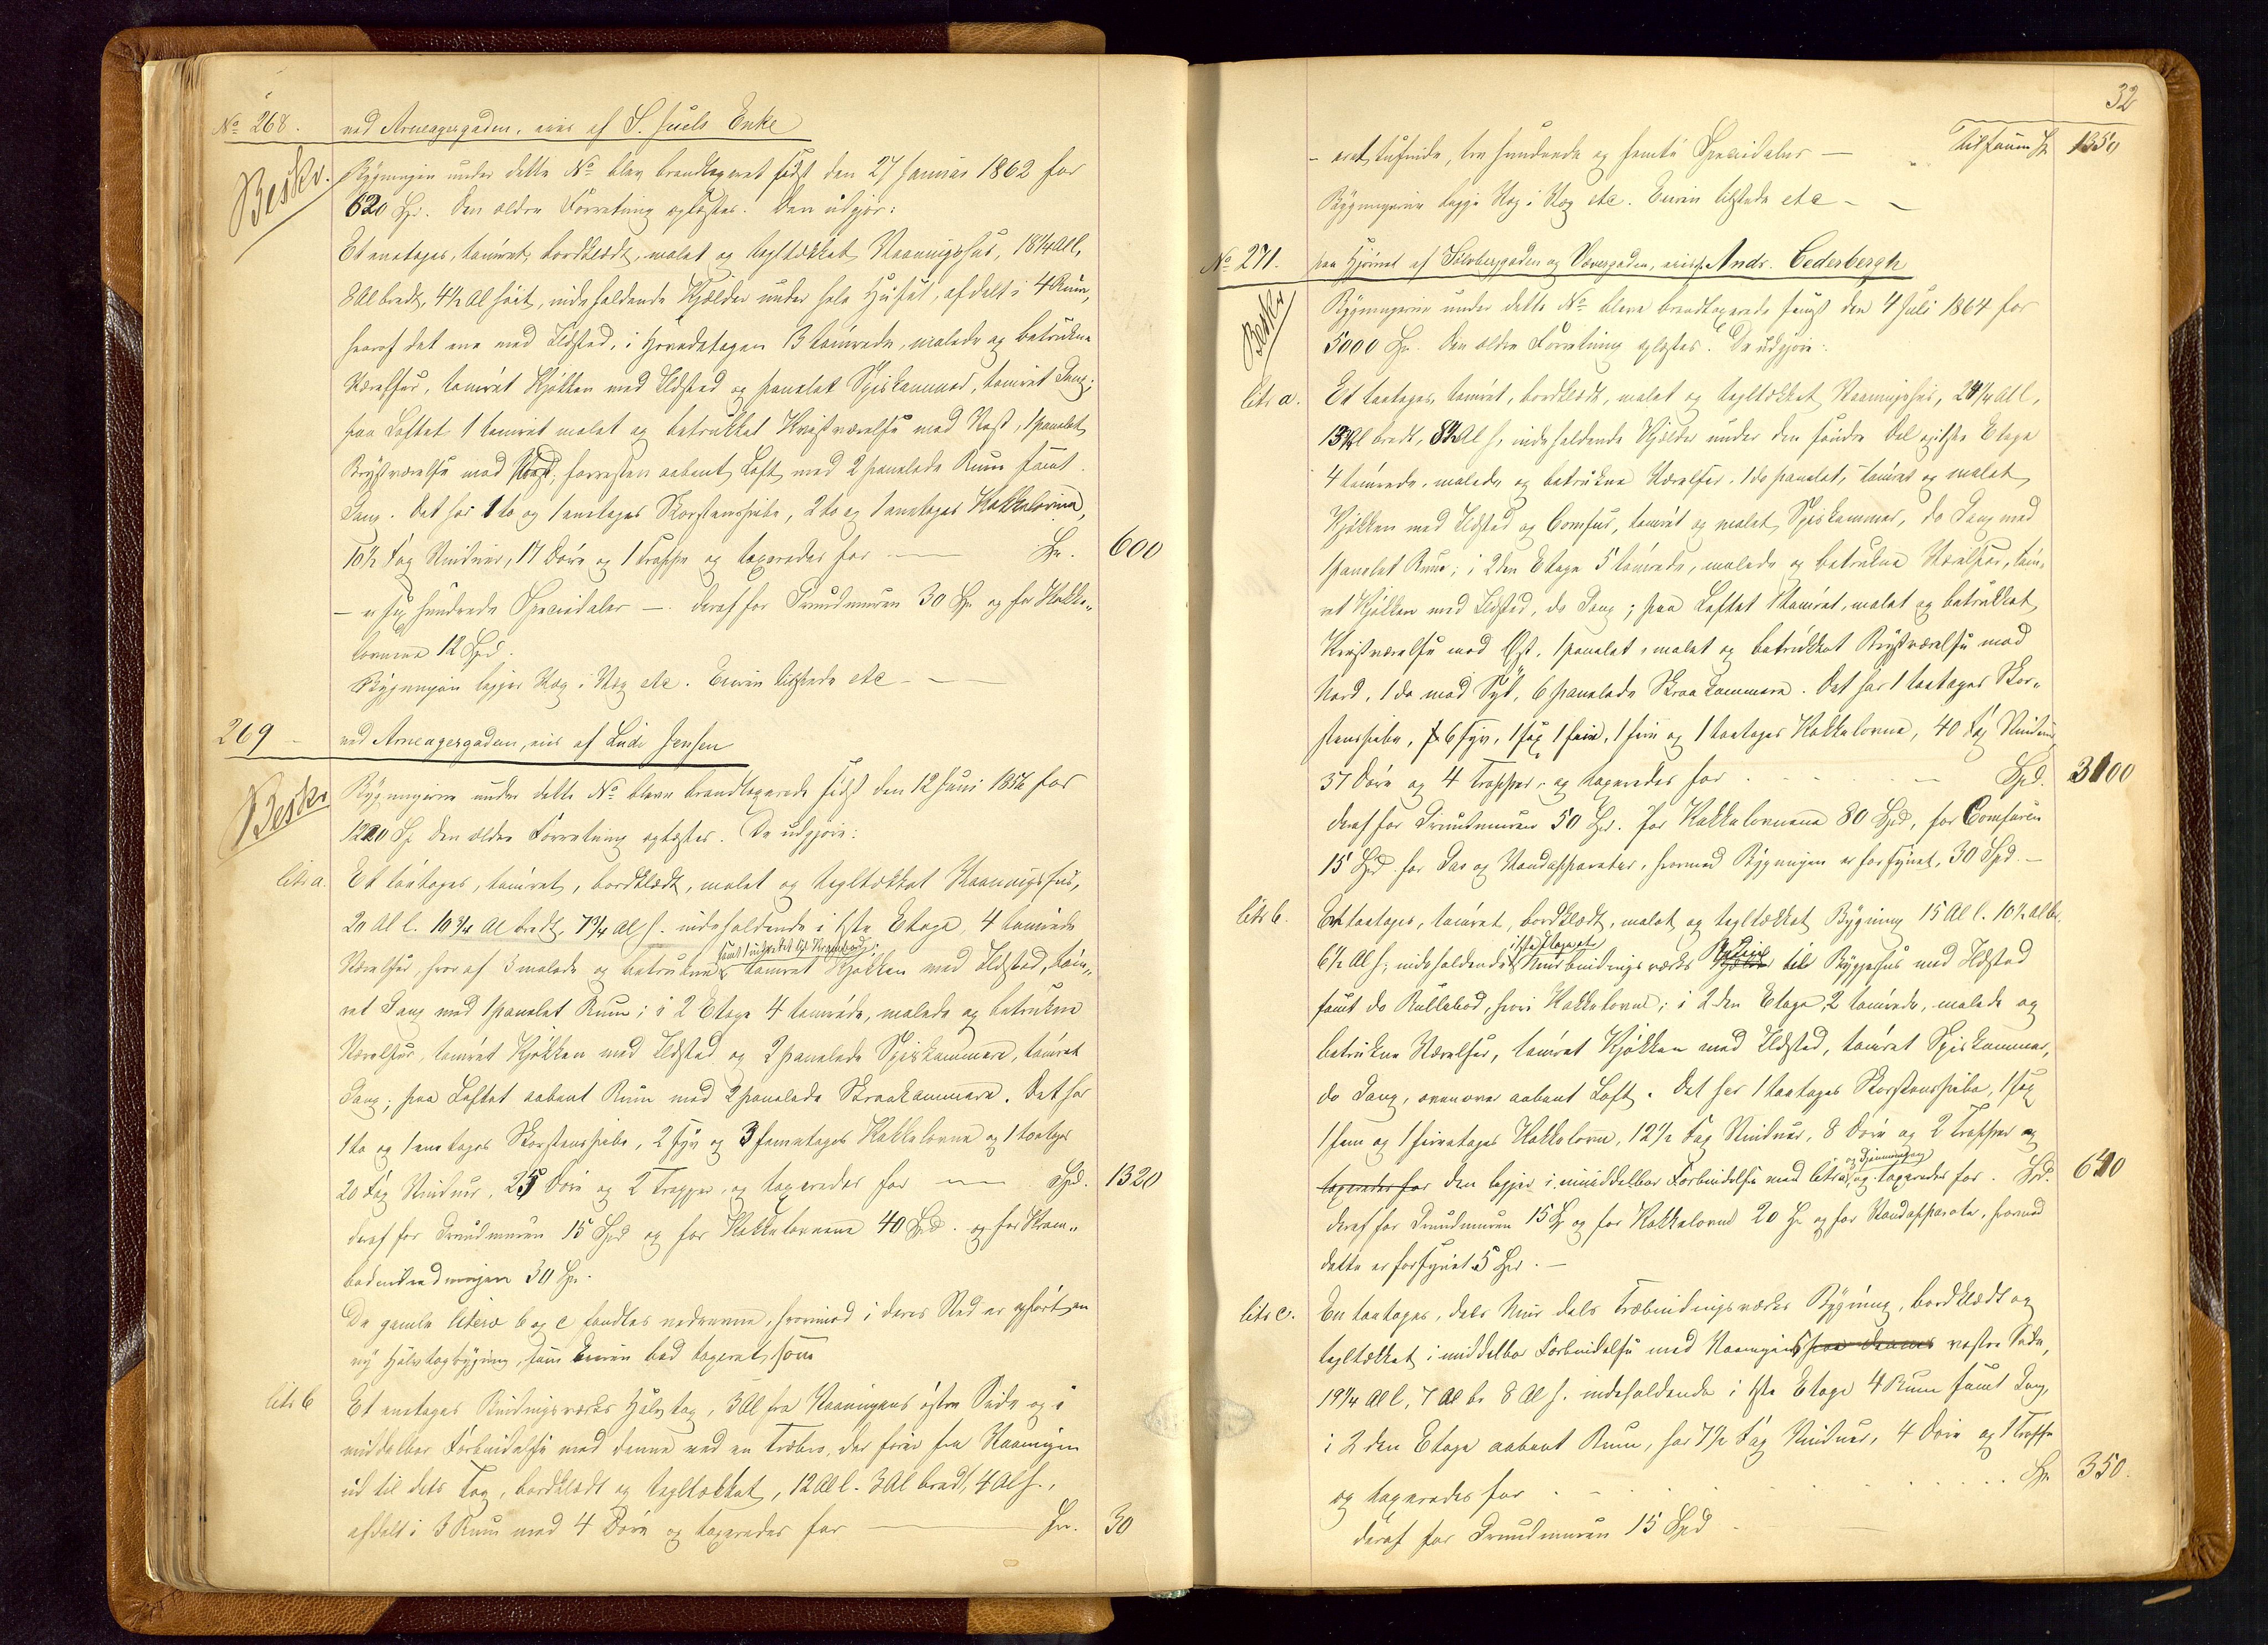 No 268. ved Arneagergaden, eies af S. Juels Enke
Beskr. Bygningen under dette No blev brandtaxeret sidst den 27 Januar 1862 for
620 Spd. Den ældre Forretning oplæstes. Den udgjør:
Et enetages, tømret, bordklædt, malet og tegltækket Vaaningshus, 18¼ Al l,
8 Al bredt, 4½ Al høit, indeholdende Kjælder under hele Huset, afdelt i 4 Rum,
hvoraf det ene med Ildsted, i Hovedetagen 3 tømrede, malede og betrukne
Værelser, tømret Kjøkken med Ildsted og panelet Spiskammer, tømret Gang;
paa Loftet 1 tømret malet og betrukket Kvistværelse mod Vest, 1 panelet
Brystværelse mod Nord, forresten aabent Loft med 2 panelede Rum samt
Gang. Det har 1 to og 1 enetages Skorstenspibe, 2 to og 1 enetages Kakkelovne,
10½ Fag Vinduer, 17 Døre og 1 Trappe og taxeredes for — Spd. 600
— er sex hundrede Speciedaler —. Deraf for Grundmuren 30 Spd og for Kakke-
lovnene 12 Spd.
Bygningen ligger Væg i Væg etc. Eieren tilstede etc — —
269 – ved Arneagergaden, eies af Ludv Jensen
Beskr Bygningerne under dette No bleve brandtaxerede sidst den 12 Juni 1856 for
1220 Sp den ældre Forretning oplæstes. De udgjøre:
litr a. Et toetages, tømret, bordklædt, malet og tegltækket Vaaningshus,
20 Al l. 10¾ Al bredt, 7¾ Al h. indeholdende i 1ste Etage 4 tømrede
samt 1 indredet til Krambod;
Værelser, hvoraf 3 malede og betrukne, tømret Kjøkken med Ildsted, tøm-
ret Gang med 1 panelet Rum; i 2 Etage 4 tømrede, malede og betrukne
Værelser, tømret Kjøkken med Ildsted og 2 panelede Spiskammere, tømret
Gang; paa Loftet aabent Rum med 2 panelede Skraakammere. Det har
1 to og 1 enetages Skorstenspibe, 2 syv og 3 femetages Kakkelovne og 1 toetages
20 Fag Vinduer, 25 Døre og 2 Trapper, og taxeredes for — Spd. 1320
deraf for Grundmuren 15 Spd og for Kakkelovnene 40 Spd. og for Kram-
bodindredningen 30 Spd.
De gamle litera b og c fandtes nedrevne, hvorimod i deres Sted er opført en
ny Halvtagbygning, som Eieren bad taxeret, som
litr b Et enetages Bindingsværks Halvtag, 3 Al fra Vaaningens østre Side og i
middelbar Forbindelse med denne ved en Træbro, der fører fra Vaaningen
ud til dets Tag, bordklædt og tegltækket, 12 Al l. 3 Al bredt, 4 Al h.,
afdelt i 3 Rum med 4 Døre og taxeredes for — Spd. 30
32
– eret tusinde, tre hundrede og femti Speciedaler — Tilsamm Sp 1350
Bygningerne ligge Væg i Væg etc. Eieren tilstede etc – –
No 271. paa Hjørnet af Sølvberggaden og Vævergaden, eies af Andr. Cederbergh
Beskr Bygningerne under dette No bleve brandtaxerede senest den 4 Juli 1864 for
5000 Spd. Den ældre Forretning oplæstes. De udgjøre:
litr a. Et toetages, tømret, bordklædt, malet og tegltækket Vaaningshus, 24¼ Al l,
13½ Al bredt, 8½ Al h, indeholdende Kjælder under den søndre Del, i 1ste Etage
4 tømrede, malede og betrukne Værelser, 1 do panelet, tømret og malet
Kjøkken med Ildsted og Comfur, tømret og malet Spiskammer, do Gang med
1 panelet Rum; i 2den Etage 5 tømrede, malede og betrukne Værelser, tøm-
ret Kjøkken med Ildsted, do Gang; paa Loftet 1 tømret, malet og betrukket
Kvistværelse mod Øst, 1 panelet, malet og betrukket Brystværelse mod
Nord, 1 do mod Syd, 6 panelede Skraakammere. Det har 1 toetages Skor-
stenspibe, 6 syv, 1 sex, 1 fem, 1 fire og 1 toetages Kakkelovne, 40 Fag Vinduer
37 Døre og 4 Trapper og taxeredes for — Spd. 3100
deraf for Grundmuren 50 Spd. for Kakkelovnene 80 Spd, for Comfuren
15 Spd for Gas og Vandapparater, hvormed Bygningen er forsynet, 30 Spd. –
litr b. En toetages, tømret, bordklædt, malet og tegltækket Bygning 15 Al l. 10½ Al br.
i 1ste Etage et
6½ Al h; indeholdende Murbindingsværks til Bryggehus med Ildsted
samt do Rullebod, hvori Kakkelovn; i 2den Etage 2 tømrede, malede og
betrukne Værelser, tømret Kjøkken med Ildsted, tømret Spiskammer,
do Gang, ovenover aabent Loft. Det har 1 toetages Skorstenspibe, 1 sex
1 fem og 1 fireetages Kakkelovn, 12½ Fag Vinduer, 8 Døre og 2 Trapper og
taxeredes for den ligger i middelbar Forbindelse med litr a, og taxeredes for. Spd. 640
deraf for Grundmuren 15 Sp og for Kakkelovne 20 Sp og for Vandapparater, hvormed
dette er forsynet 5 Spd. –
litr c. En toetages, dels Mur dels Træbindingsværks Bygning, bordklædt og
tegltækket i middelbar Forbindelse med Vaaningens paa dennes vestre Side,
19¼ Al l, 7 Al br 8 Al h. indeholdende i 1ste Etage 4 Rum samt Gang,
i 2den Etage aabent Rum, har 7½ Fag Vinduer, 4 Døre og 1 Trappe
og taxeredes for . . . Spd 350.
deraf for Grundmuren 15 Spd